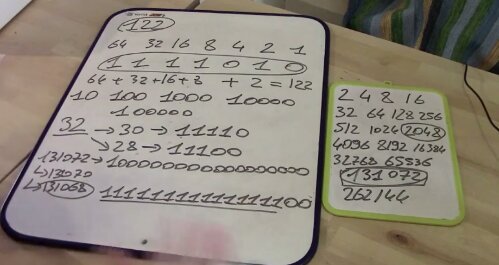 122
64 32 16 8 4 2 1
1 1 1 1 0 1 0
64 + 32 + 16 + 8 + 2 = 122
10 100 1000 10000
100000
32 → 30 → 11110
→ 28 → 11100
131072 → 100000000000000000
↳ 131070
↳ 131068
11111111111111100
2 4 8 16
32 64 128 256
512 1024 2048
4096 8192 16384
32768 65536
131072
262144